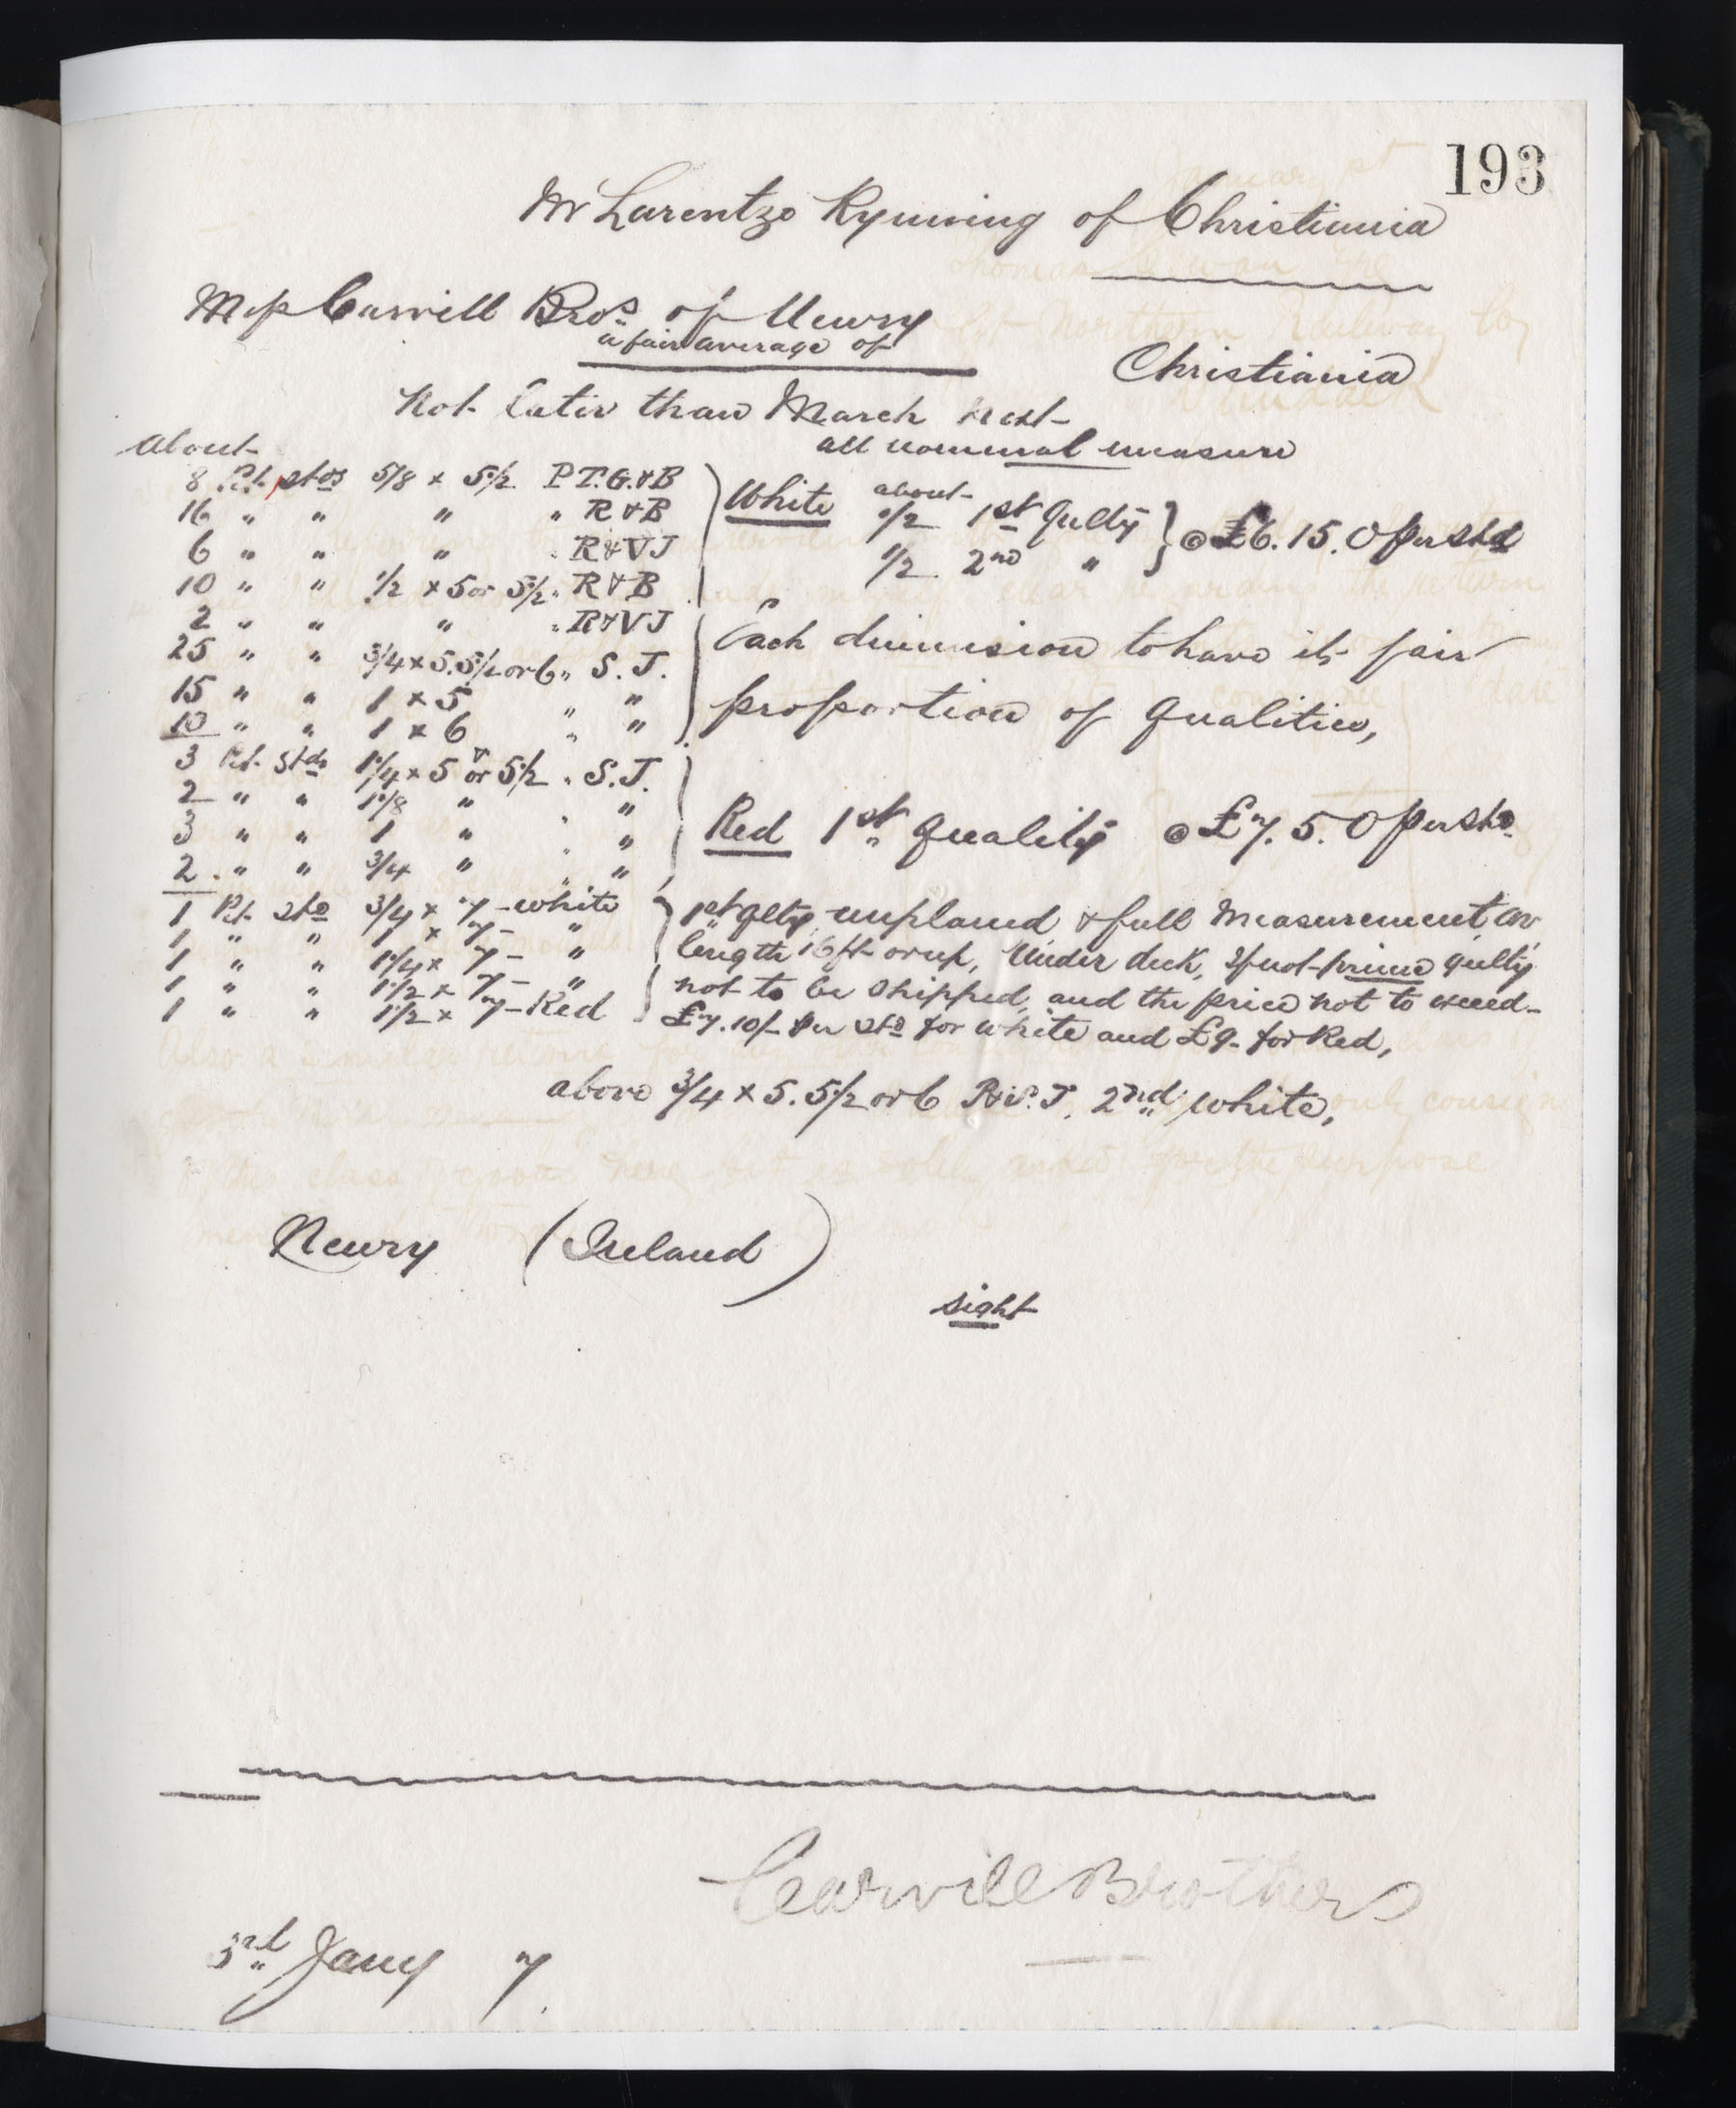 193
Mr Larentzo Rynning of Christiania
Messrs Carvill Bros. of Newry
a fair average of
Christiania
Not later than March next
all nominal measure
About
8 Pet. stds 5/8 x 5 1/2 P.T.G.&B
16 " " " " R&B
6 " " " " R&VJ
10 " " 1/2 x 5 or 5 1/2 " R&B
2 " " " " R&VJ
25 " " 3/4 x 5. 5 1/2 or 6 " S.J.
15 " " 1 x 5 " "
10 " " 1 x 6 " "
White about 1/2 1st Qulty } @ £6.15.0 per std
1/2 2nd "
Each dimension to have its fair
proportion of qualities,
3 Pet. Stds 1 1/4 x 5 or 5 1/2 " S.J.
2 " " 1 1/8 " " "
3 " " 1 " " "
2 " " 3/4 " " "
Red 1st Quality @ £7.5.0 per std.
1 Pet. Std 3/4 x 7 - white
1 " " 1 x 7 - "
1 " " 1 1/4 x 7 - "
1 " " 1 1/2 x 7 - "
1 " " 1 1/2 x 7 - Red
1st qlty, unplaned & full measurement av
length 16 ft or up, Under deck, If not prime qulty
not to be shipped, and the price not to exceed
£7.10/- per std for white and £9- for Red,
above 3/4 x 5. 5 1/2 or 6 2nd white,
Newry (Ireland)
sight
Carvill Brothers
3rd Jany 7.